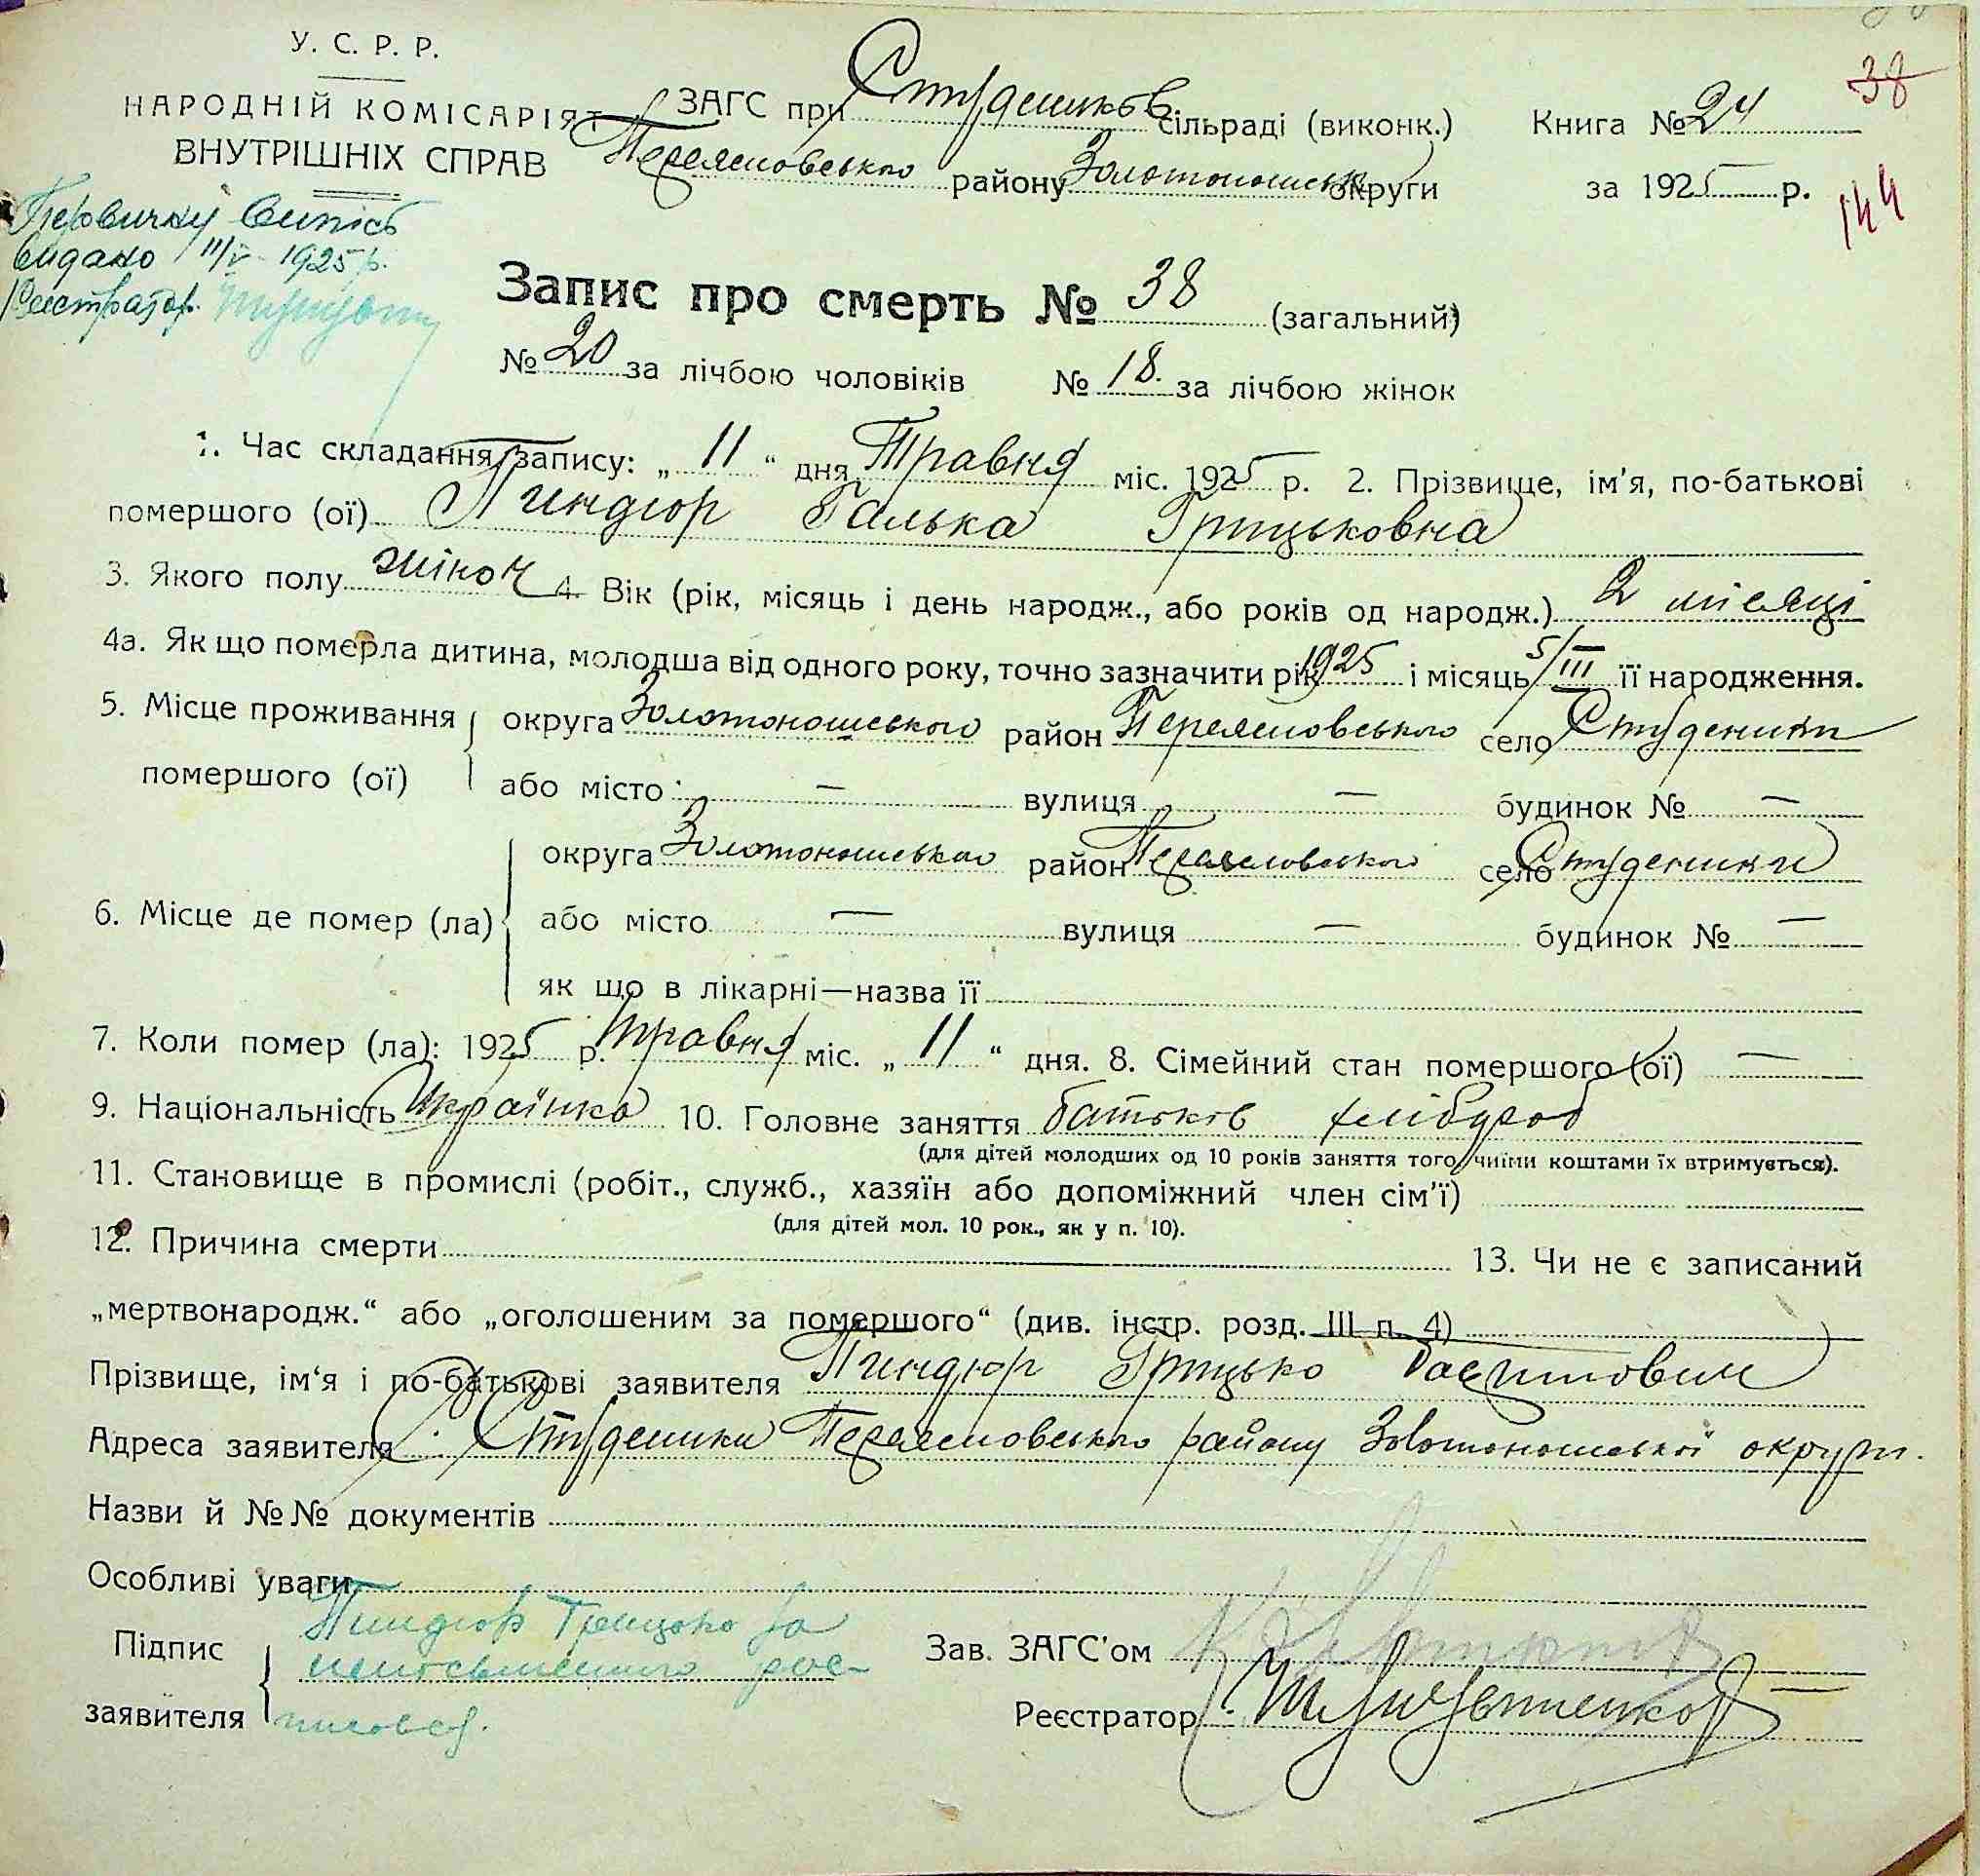 У. С. Р. Р.
НАРОДНІЙ КОМІСАРІЯТ
ВНУТРІШНІХ СПРАВ
ЗАГС при Студеников сільраді (виконк.) Книга № 24
38
Переясловського району Золотоношськ округи за 1925 р.
144
Первичну випісь
видано 11/V 1925 р.
Реєстратор
Запис про смерть № 38 (загальний)
№ 20 за лічбою чоловіків № 18. за лічбою жінок
1. Час складання запису: „ 11 “ дня Травня міс. 1925 р. 2. Прізвище, ім'я, по-батькові
помершого (ої) Пиндюр Галька Грицьковна
3. Якого полу жіноч 4. Вік (рік, місяць і день народж., або років од народж.) 2 місяці
4а. Як що померла дитина, молодша від одного року, точно зазначити рік 1925 і місяць 5/III її народження.
5. Місце проживання округа Золотоношського район Переясловського село Студеники
помершого (ої) або місто — вулиця — будинок № —
округа Золотоношського район Переясловського село Студеники
6. Місце де помер (ла) або місто — вулиця — будинок № —
як що в лікарні—назва її
7. Коли помер (ла): 1925 р. травня міс. „ 11 “ дня. 8. Сімейний стан помершого (ої) —
9. Національність Українка 10. Головне заняття батьків хлібороб
(для дітей молодших од 10 років заняття того, чиїми коштами їх втримується).
11. Становище в промислі (робіт., служб., хазяїн або допоміжний член сім'ї)
(для дітей мол. 10 рок., як у п. 10).
12. Причина смерти 13. Чи не є записаний
„мертвонародж.“ або „оголошеним за помершого“ (див. інстр. розд. III п. 4)
Прізвище, ім'я і по-батькові заявителя Пиндюр Грицько
Адреса заявителя с. Студеники Переясловського району Золотоношської округи.
Назви й №№ документів
Особливі уваги
Підпис Пиндюр Грицько за
неписьменного рос-
заявителя писався.
Зав. ЗАГС'ом
Реєстратор